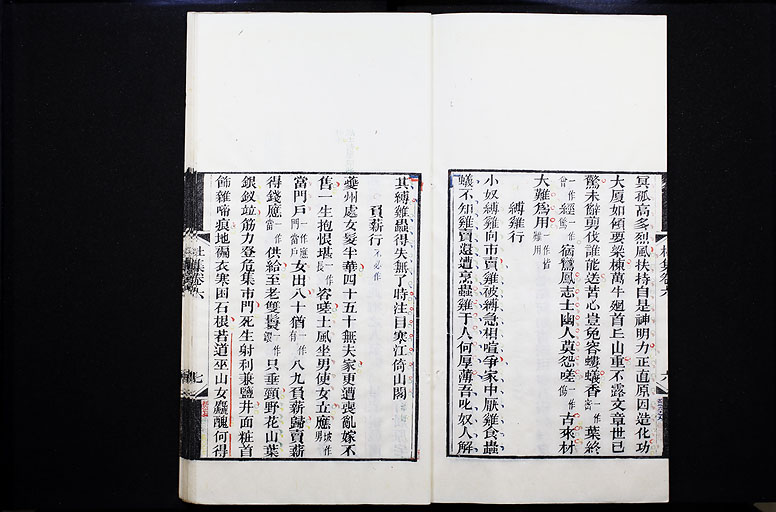 冥孤高多烈風扶持自是神明力正直原因造化功
大廈如傾要梁棟萬牛迴首丘山重不露文章世已
驚未辭剪伐誰能送苦心豈免容螻蟻香葉終
宿鸞鳳志士幽人莫怨嗟古來材
大難為用
縛雞行
小奴縛雞向市賣雞被縛急相喧爭家中厭雞食蟲
蟻不知雞賣還遭烹蟲雞于人何厚薄吾叱奴人解
其縛雞蟲得失無了時注目寒江倚山閣
負薪行
夔州處女髮半華四十五十無夫家更遭喪亂嫁不
舊一生抱恨堪一作長咨嗟土風坐男使女立應
當門戶女出八十猶一作有八九負薪歸賣薪
得錢應一作當供給至老雙鬟一作只垂頸野花山葉
銀釵竝筋力登危集市門死生射利兼鹽井面粧首
飾雜啼痕地褊衣寒困石根若道巫山女麤醜何得
杜集卷六
七